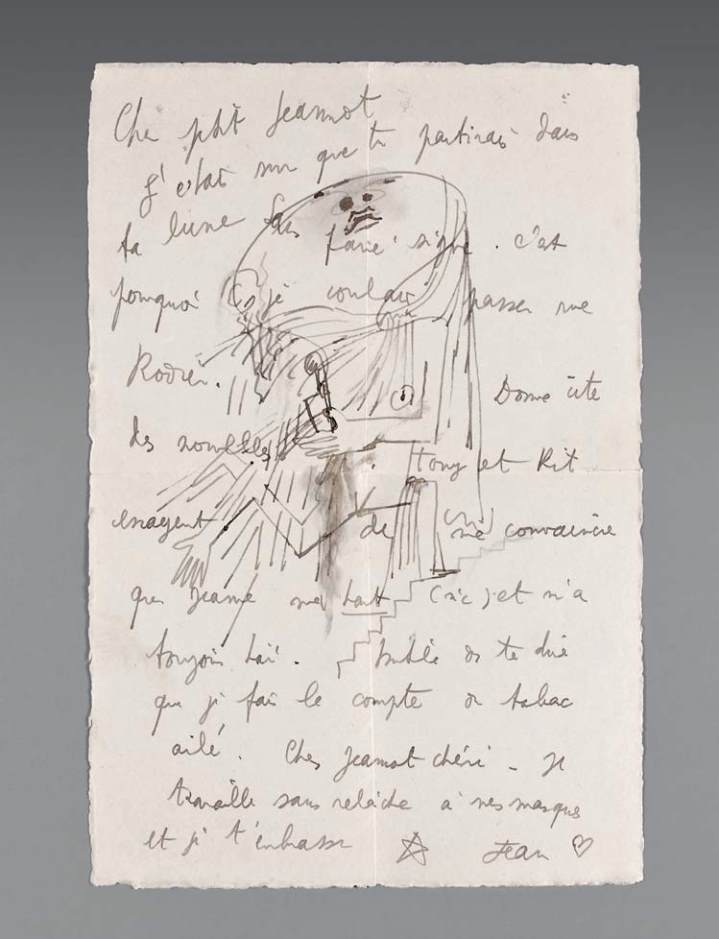 Cher ptit Jeannot
J'étais sur que tu partirais dans
ta lune sans faire signe. c'est
pourquoi je voulais passer rue
Donne vite
des nouvelles Tony et Kit
essayent de me convaincre
que Jeanne me hait (sic) et m'a
toujours haï. oublié de te dire
que je fais le compte de tabac
ailé. Cher Jeannot chéri - je
travaille sans relâche à mes masques
et je t'embrasse Jean